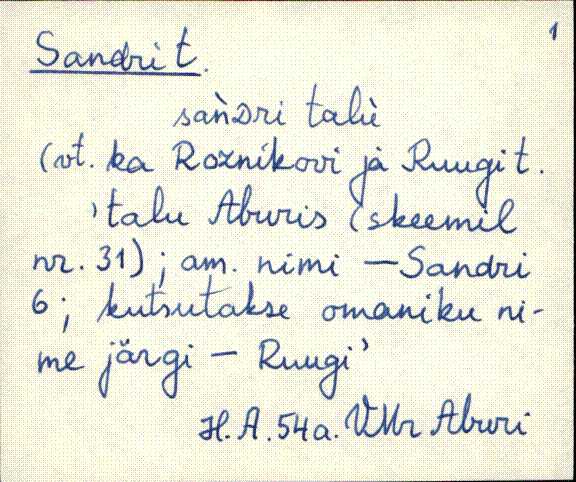 1
Sandri t.
sań̀dri talù
(vt. ka Roznikovi jà Ruugi t.
'talu Aburis (skeemil
nr. 31); am. nimi — Sandri
6; kutsutakse omaniku ni-
me järgi — Ruugi'
H.A.54a. VMr Aburi